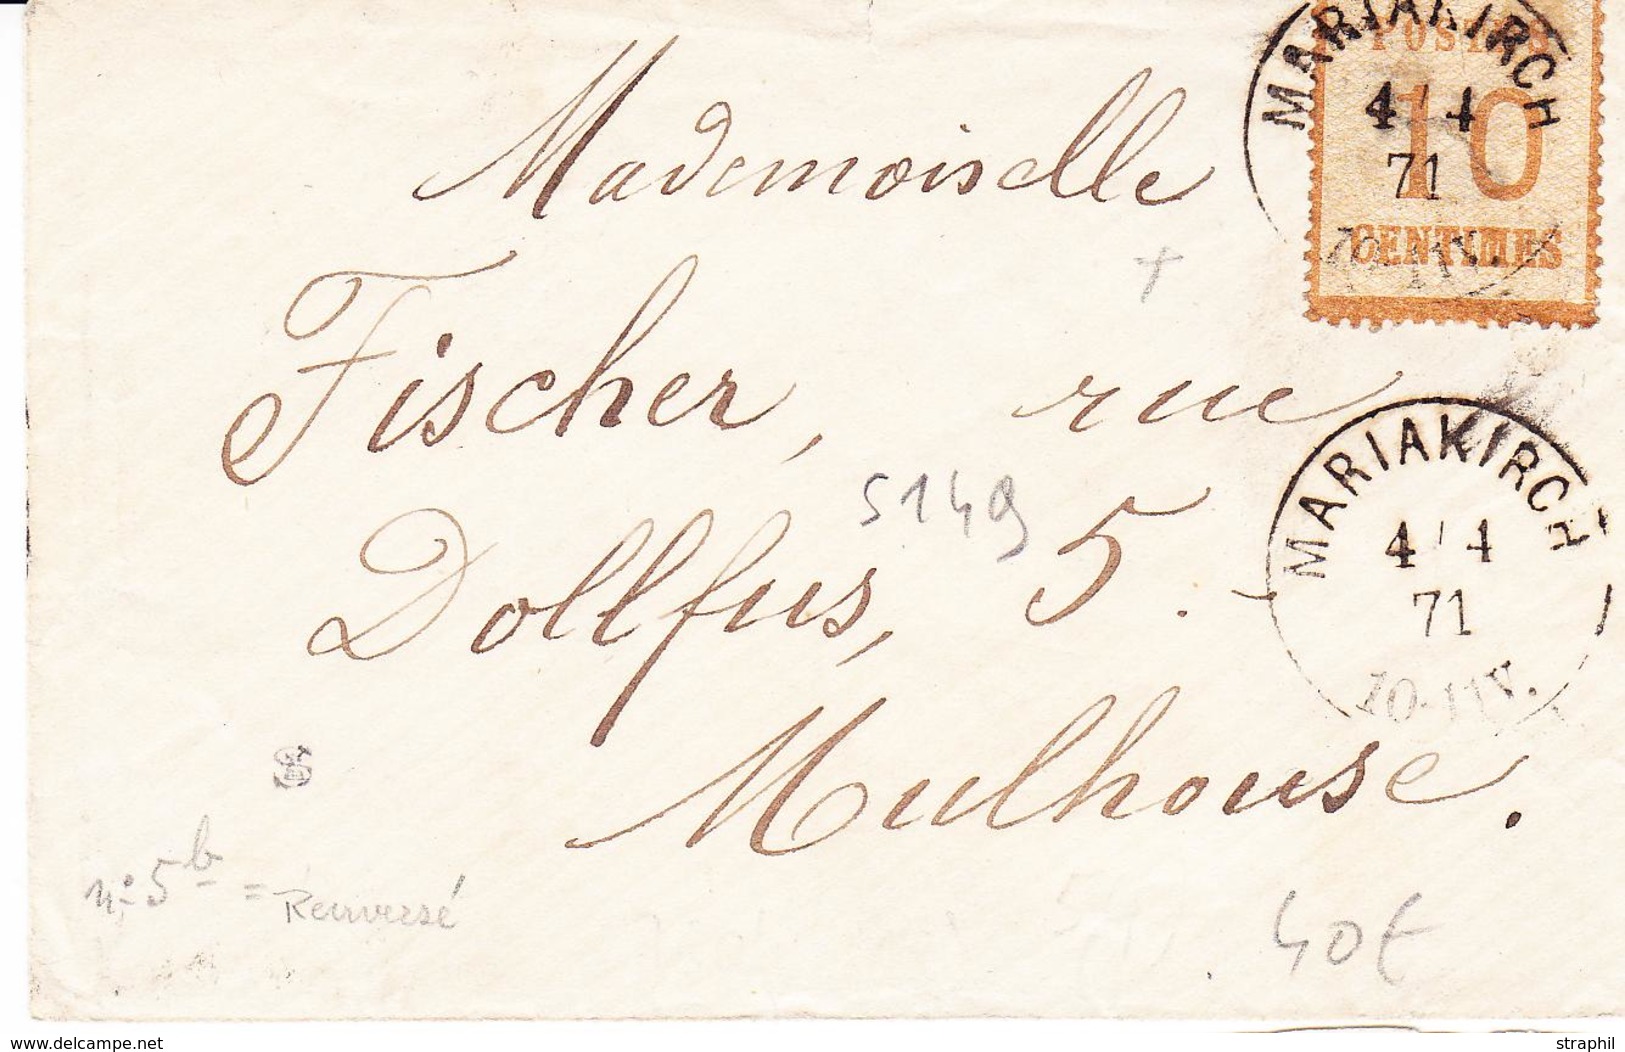 MARIAKIRCH
POSTES
4 / 4
71
10
CENTIMES
Mademoiselle
Fischer, rue
Dollfus, 5.
Mulhouse.
5149
MARIAKIRCH
4 / 4
71
S
n° 5 b = Renversé
40€
delcampe.net
straphil